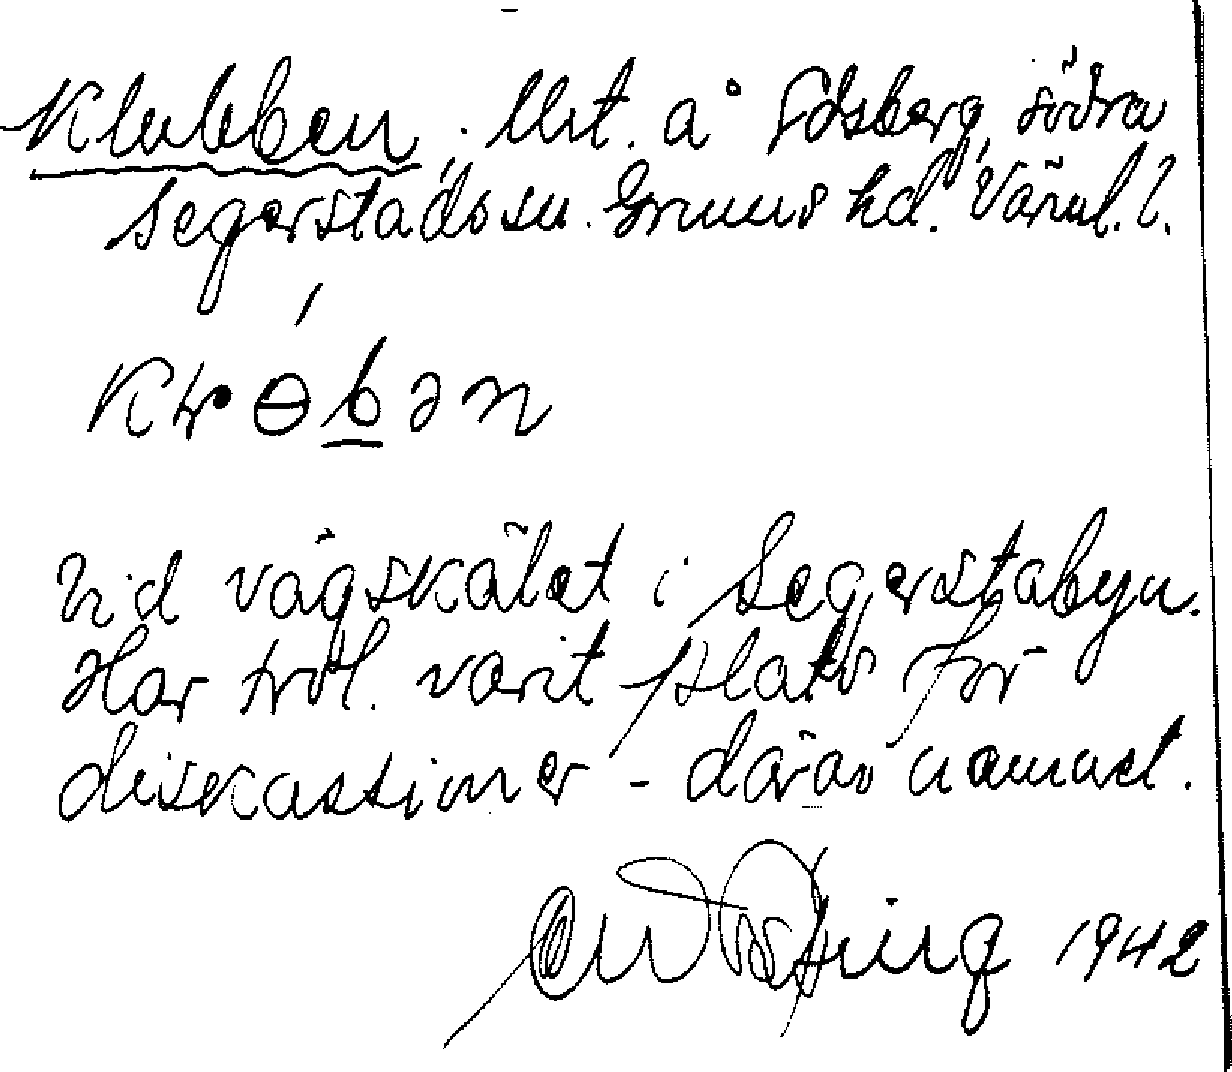 Klubben. Utt. å Edsberg, södra
Segerstads sn. Grums hd. Värml. l.
Vid vägskälet i Segerstabyn.
Har trol. varit plats för
diskussioner - därav namnet.
1942